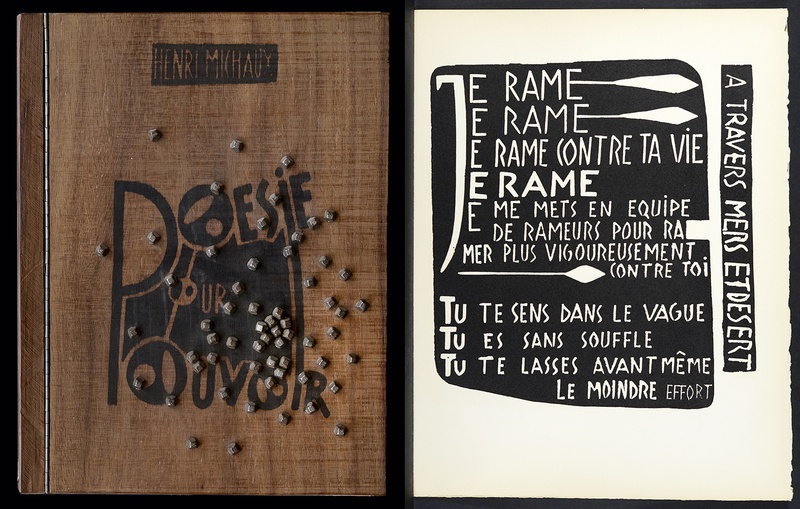 HENRI MICHAUX
POESIE
POUR
POUVOIR
JE RAME
JE RAME
JE RAME CONTRE TA VIE
JE RAME
JE ME METS EN EQUIPE
DE RAMEURS POUR RA
MER PLUS VIGOUREUSEMENT
CONTRE TOI
TU TE SENS DANS LE VAGUE
TU ES SANS SOUFFLE
TU TE LASSES AVANT MÊME
LE MOINDRE EFFORT
A TRAVERS MERS ET DESERT